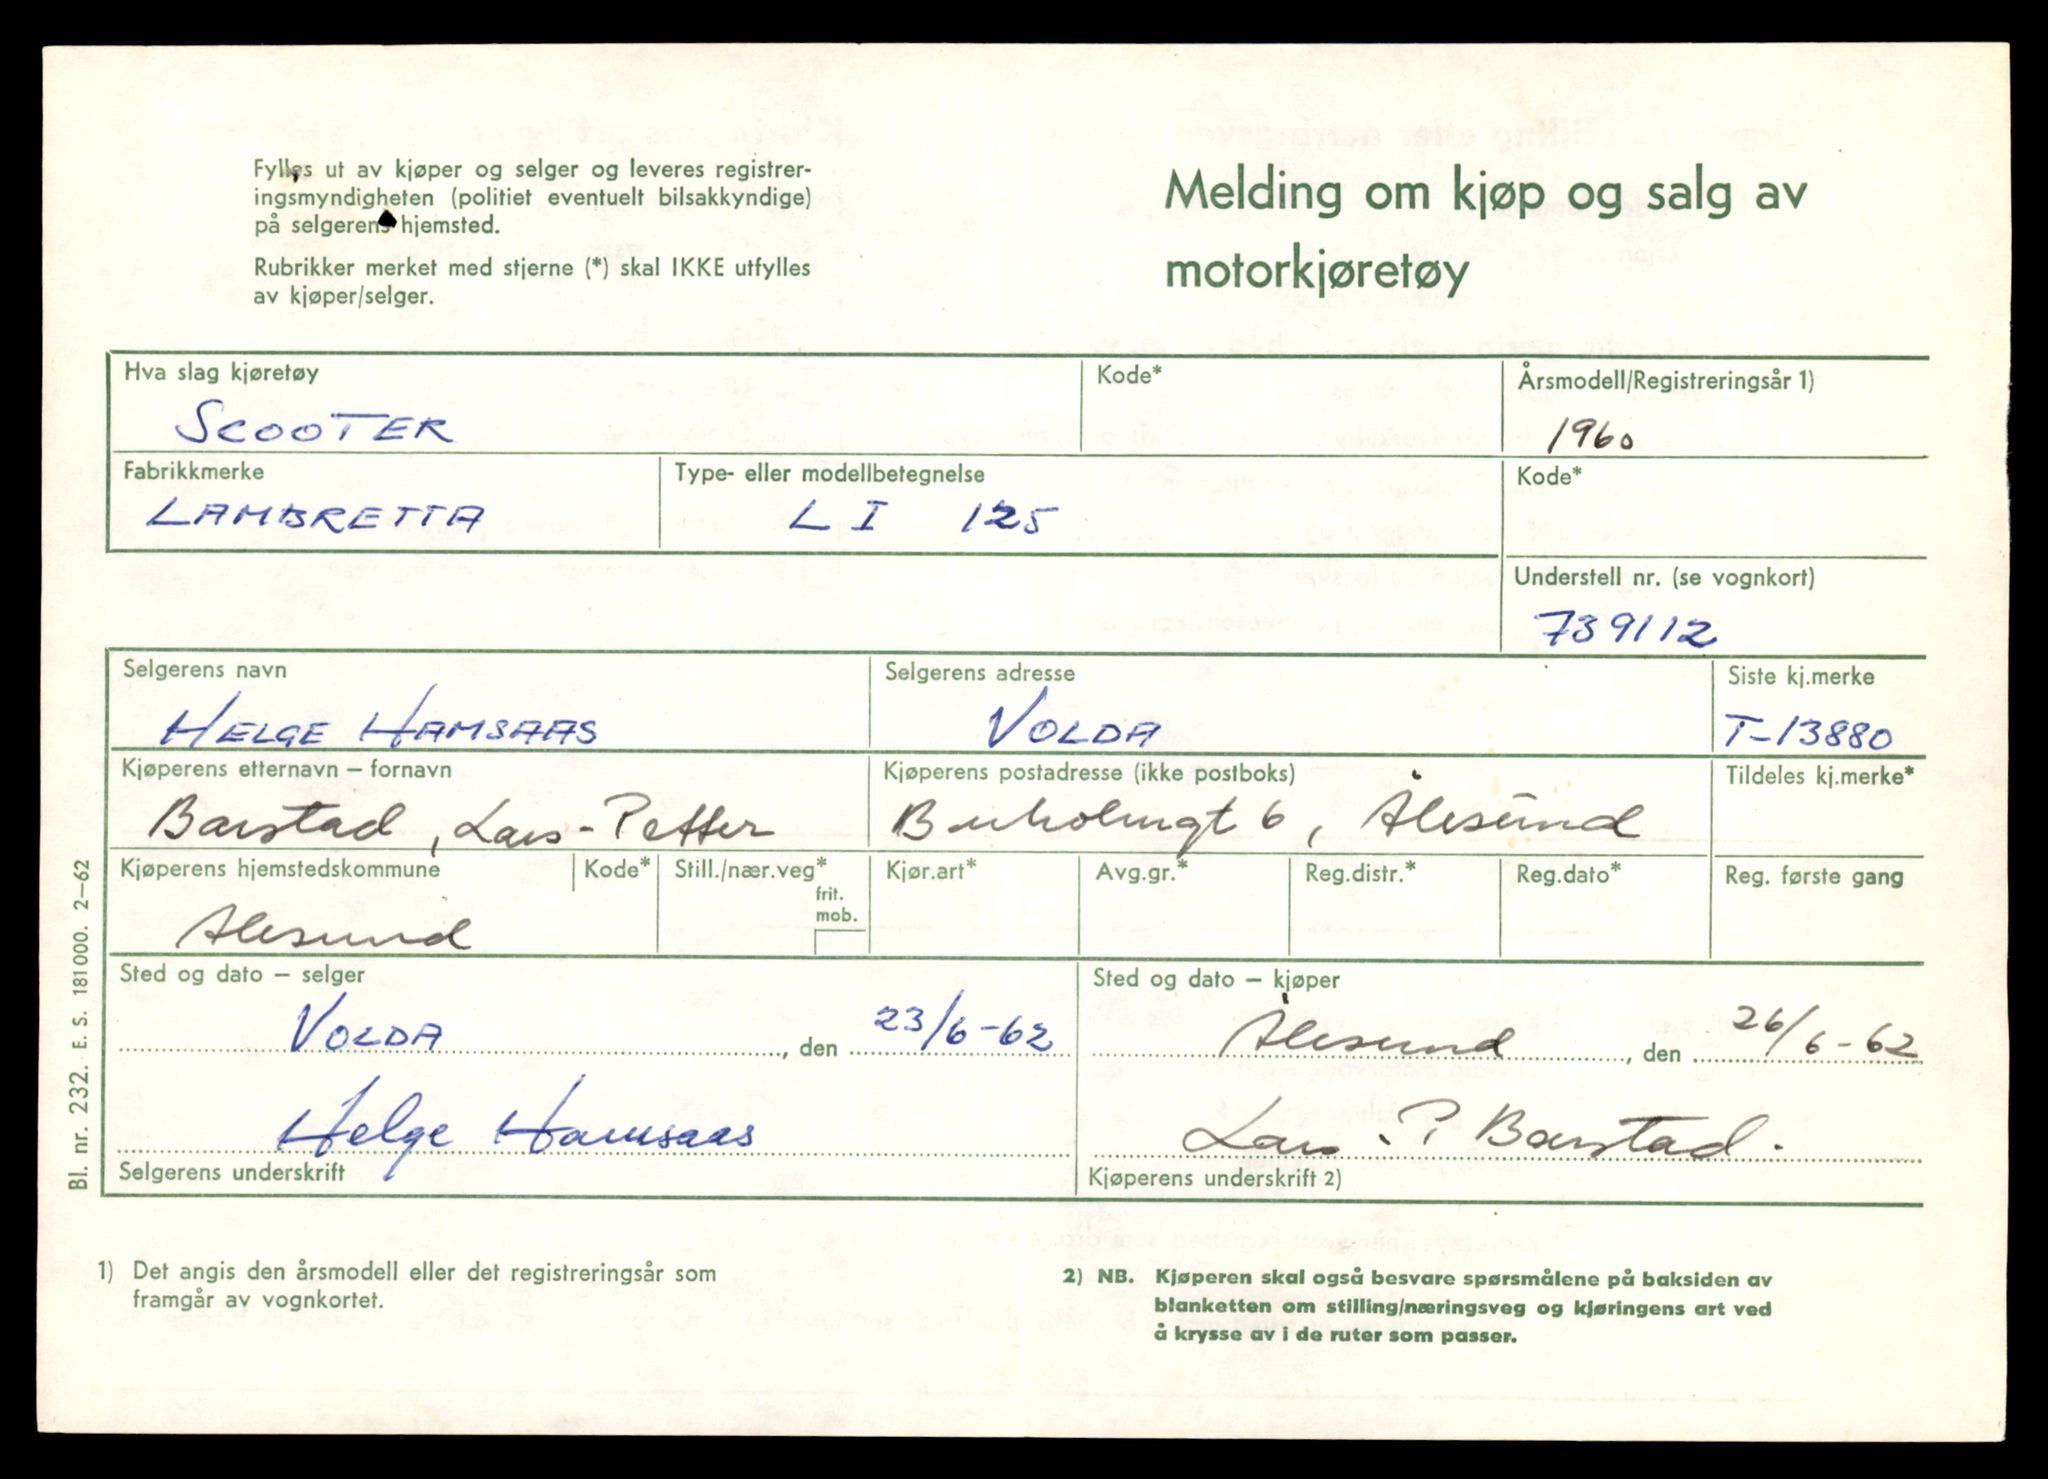 Fylles ut av kjøper og selger og leveres registrer-
ingsmyndigheten (politiet eventuelt bilsakkyndige)
på selgerens hjemsted.
Rubrikker merket med stjerne (*) skal IKKE utfylles
av kjøper/selger.
Melding om kjøp og salg av
motorkjøretøy
Hva slag kjøretøy
SCOOTER
Kode*
Årsmodell/Registreringsår 1)
1960
Fabrikkmerke
LAMBRETTA
Type- eller modellbetegnelse
LI 125
Kode*
Understell nr. (se vognkort)
739112
Selgerens navn
HELGE HAMSAAS
Selgerens adresse
VOLDA
Siste kj.merke
T-13880
Kjøperens etternavn – fornavn
Barstad, Lars-Petter
Kjøperens postadresse (ikke postboks)
Buholmgt 6, Ålesund
Tildeles kj.merke*
Kjøperens hjemstedskommune
Ålesund
Kode*
Still./nær.veg*
frit.
mob.
Kjør.art*
Avg.gr.*
Reg.distr.*
Reg.dato*
Reg. første gang
Sted og dato – selger
VOLDA, den 23/6-62
Helge Hamsaas
Selgerens underskrift
Sted og dato – kjøper
Ålesund, den 26/6-62
Lars P Barstad.
Kjøperens underskrift 2)
Bl. nr. 232. E. S. 181000. 2–62
1) Det angis den årsmodell eller det registreringsår som
framgår av vognkortet.
2) NB. Kjøperen skal også besvare spørsmålene på baksiden av
blanketten om stilling/næringsveg og kjøringens art ved
å krysse av i de ruter som passer.